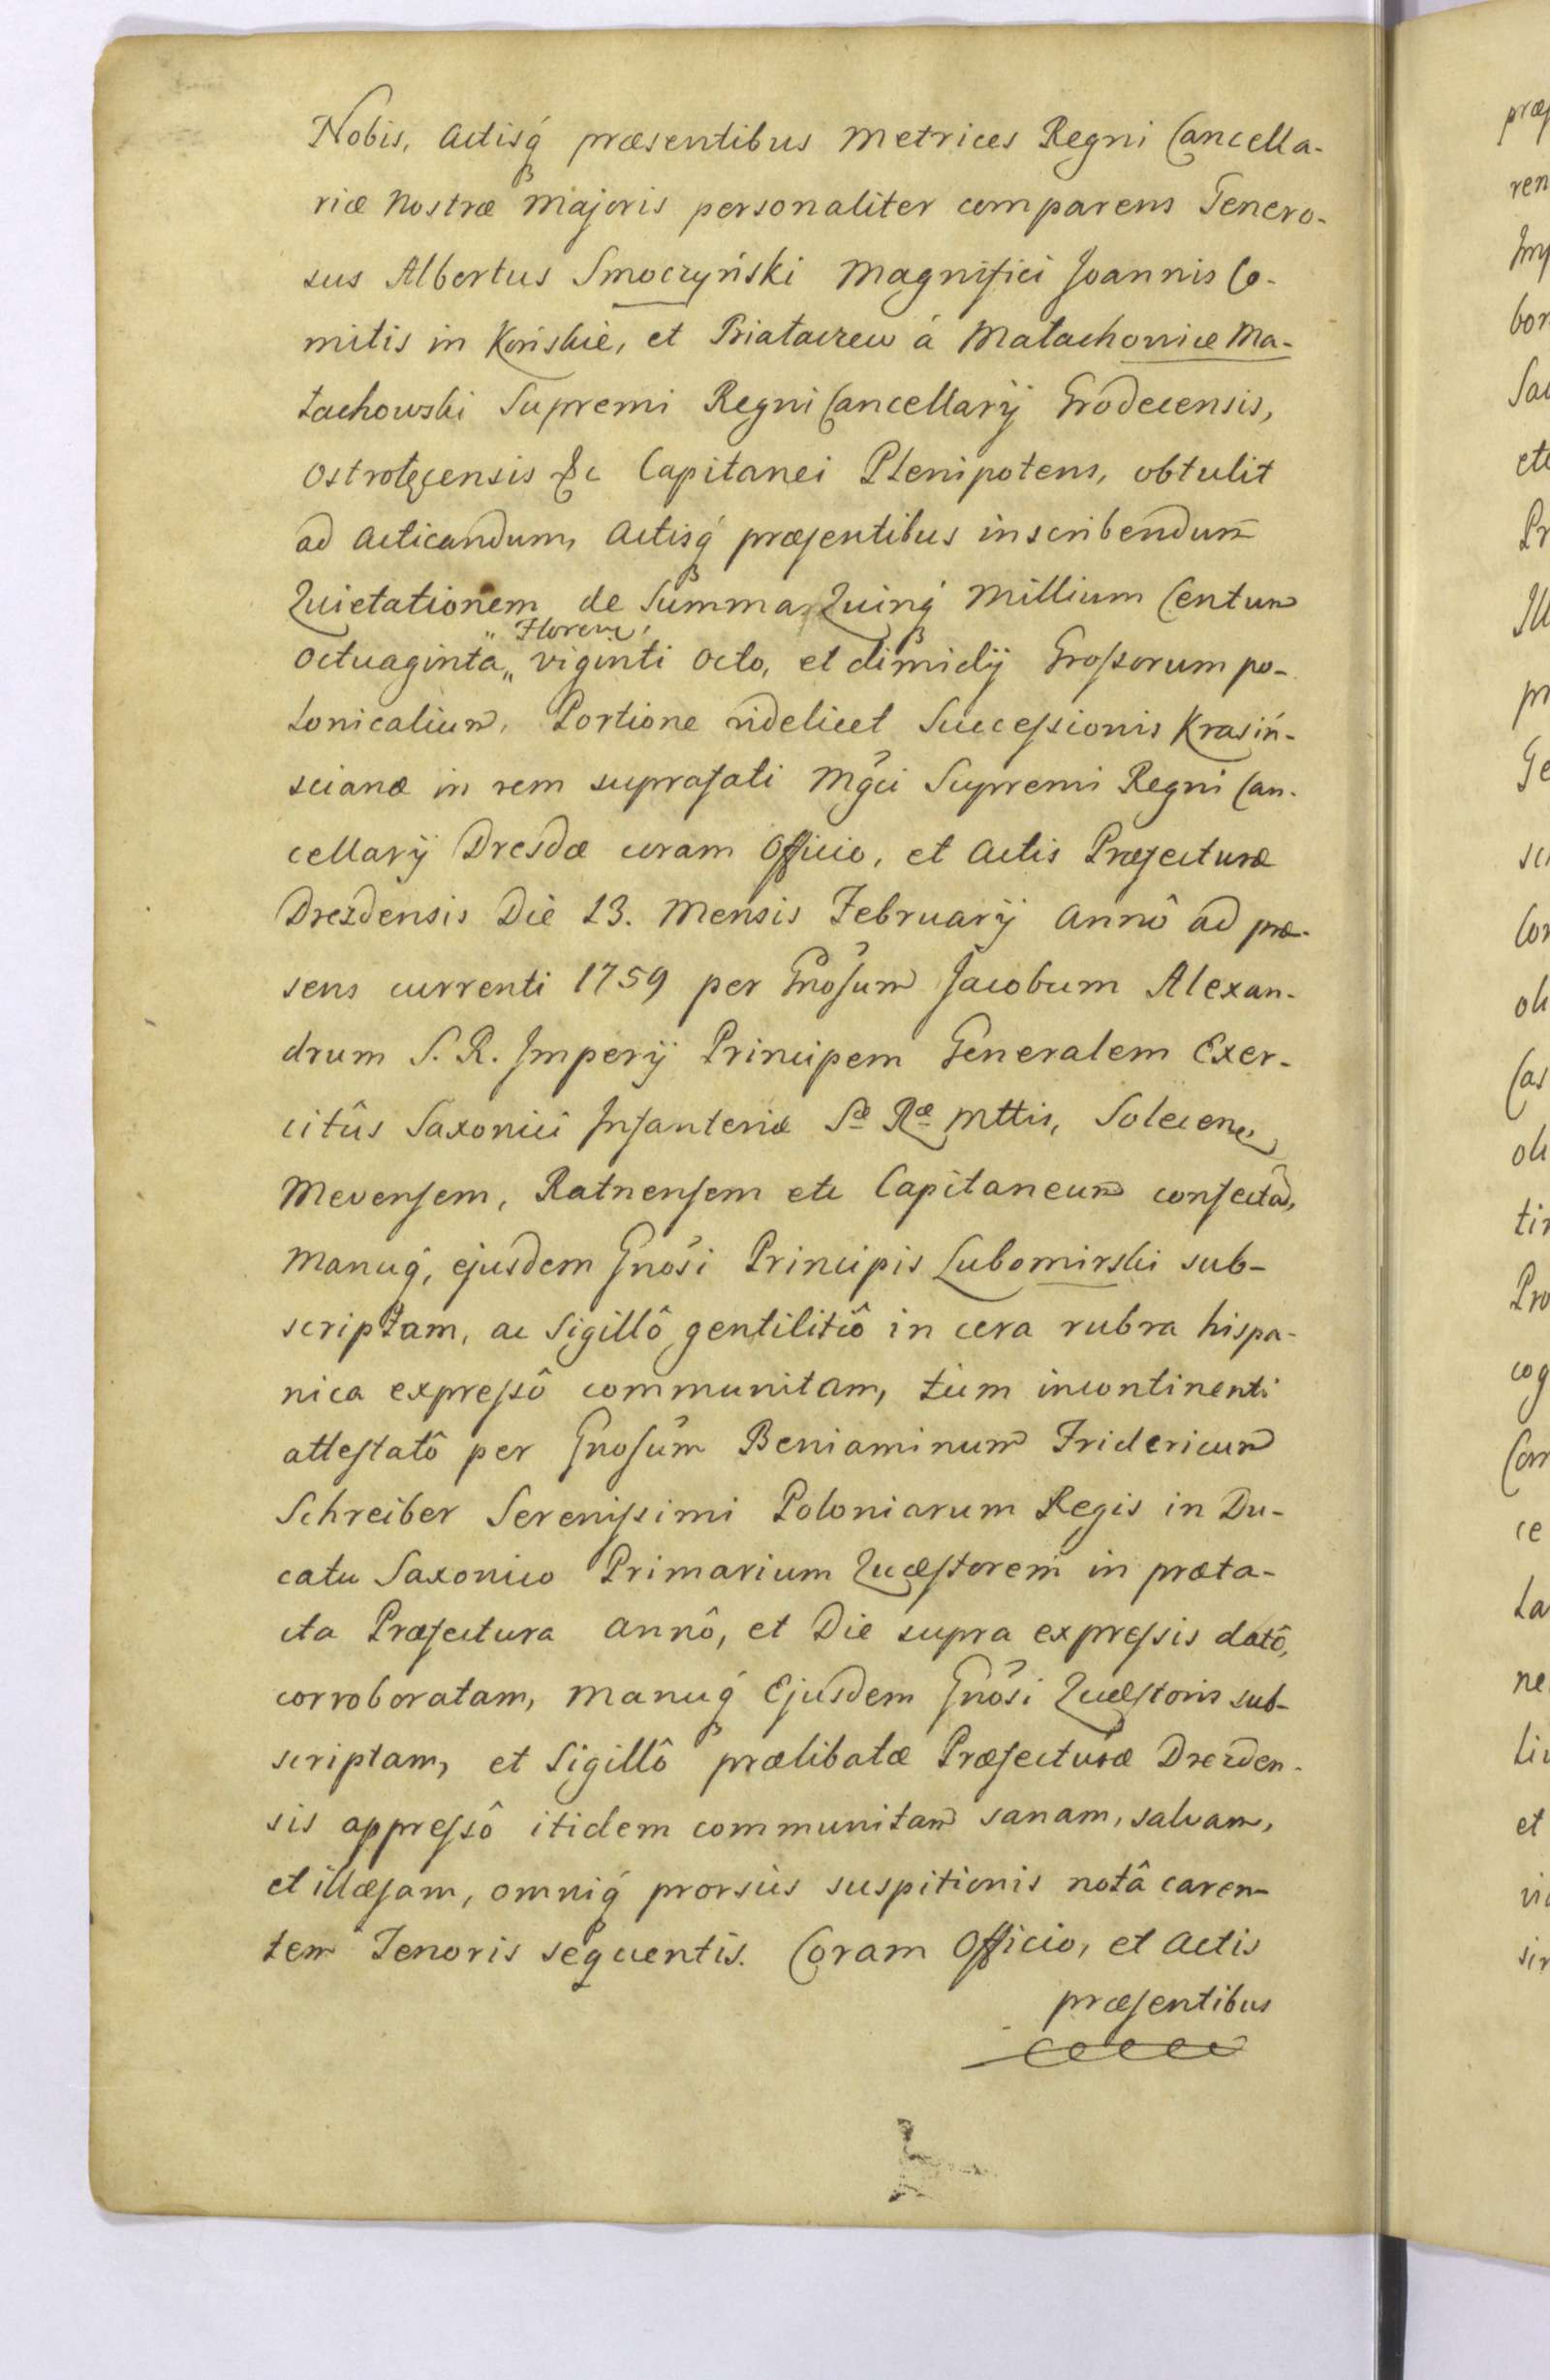 Nobis, Actisq́ præsentibus Metrices Regni Cancella-
riæ Nostræ Majoris personaliter comparens Genero-
sus Albertus Smoczyński Magnifici Joannis Co-
mitis in Końskie, et Białaczew á Małachowice Ma-
łachowski Supremi Regni Cancellarÿ Grodecensis,
Ostrołęcensis &c Capitanei Plenipotens, obtulit
ad Acticandum, Actisq́ præsentibus inscribendum
Quietationem de Summa Quinq́ Millium Centum
Floren:
Octuaginta „ viginti Octo, et dimidÿ Grossorum po-
lonicalium, Portione videlicet Successionis Krasiń-
scianæ in rem suprafati Mgci Supremi Regni Can-
cellarÿ Dresdæ coram Officio, et Actis Præfecturæ
Drezdensis Die 13. Mensis Februarÿ Annô ad præ-
sens currenti 1759 per Gnosum Jacobum Alexan-
drum S. R. Imperÿ Principem Generalem Exer-
citûs Saxonici Infanteriæ Sæ Ræ Mttis, Solecen:
Mevensem, Ratnensem etc Capitaneum confectam,
Manuq́, ejusdem Gnosi Principis Lubomirski sub-
scriptam, ac Sigillô gentilitiô in cera rubra hispa-
nica expressô communitam, tum incontinenti
attestatô per Gnosum Beniaminum Fridericum
Schreiber Serenissimi Poloniarum Regis in Du-
catu Saxonico Primarium Quæstorem in præta-
cta Præfectura Annô, et Die supra expressis datô,
corroboratam, Manuq́ Ejusdem Gnosi Quæstoris sub-
scriptam, et Sigillô prælibatæ Præfecturæ Drezden-
sis appressô itidem communitam sanam, salvam,
et illæsam, omniq́ prorsùs suspitionis notâ caren-
tem Tenoris sequentis. Coram Officio, et Actis
præsentibus